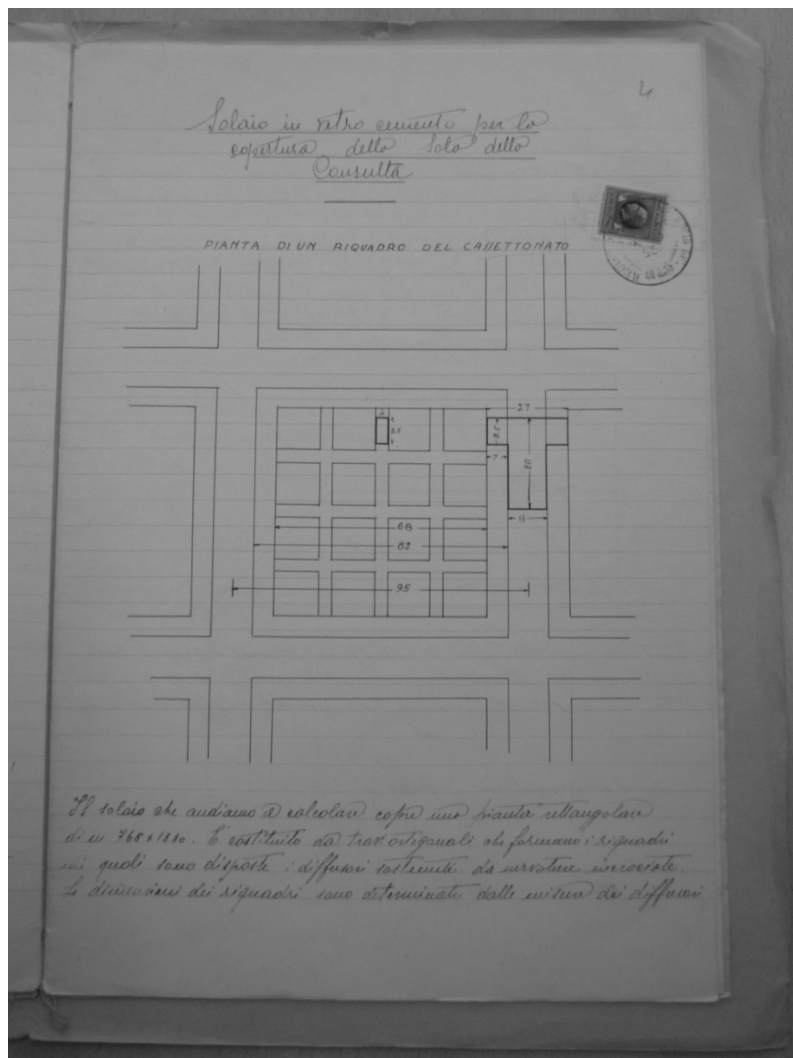 4
Solaio in vetro cemento per la
copertura della Sala della
Consulta
PIANTA DI UN RIQUADRO DEL CASSETTONATO
27
8.5
8.5
7
30
13
68
82
95
Il solaio che andiamo a calcolare copre una pianta rettangolare
di m 7.65 x 13.30. È costituito da travi ortogonali che formano i riquadri
nei quali sono disposte i diffusori sostenuti da nervature incrociate.
Le dimensioni dei riquadri sono determinate dalle misure dei diffusori